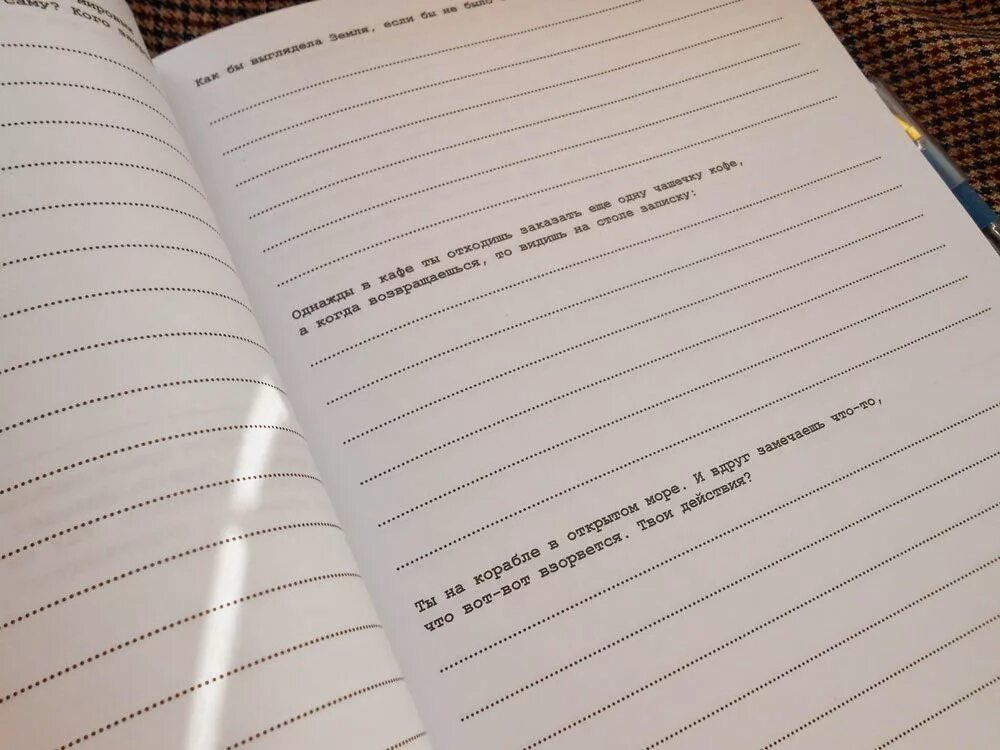 мировым
саму? Кого
Как бы выглядела Земля, если бы не было
Однажды в кафе ты отходишь заказать еще одну чашечку кофе,
а когда возвращаешься, то видишь на столе записку:
Ты на корабле в открытом море. И вдруг замечаешь что-то,
что вот-вот взорвется. Твои действия?